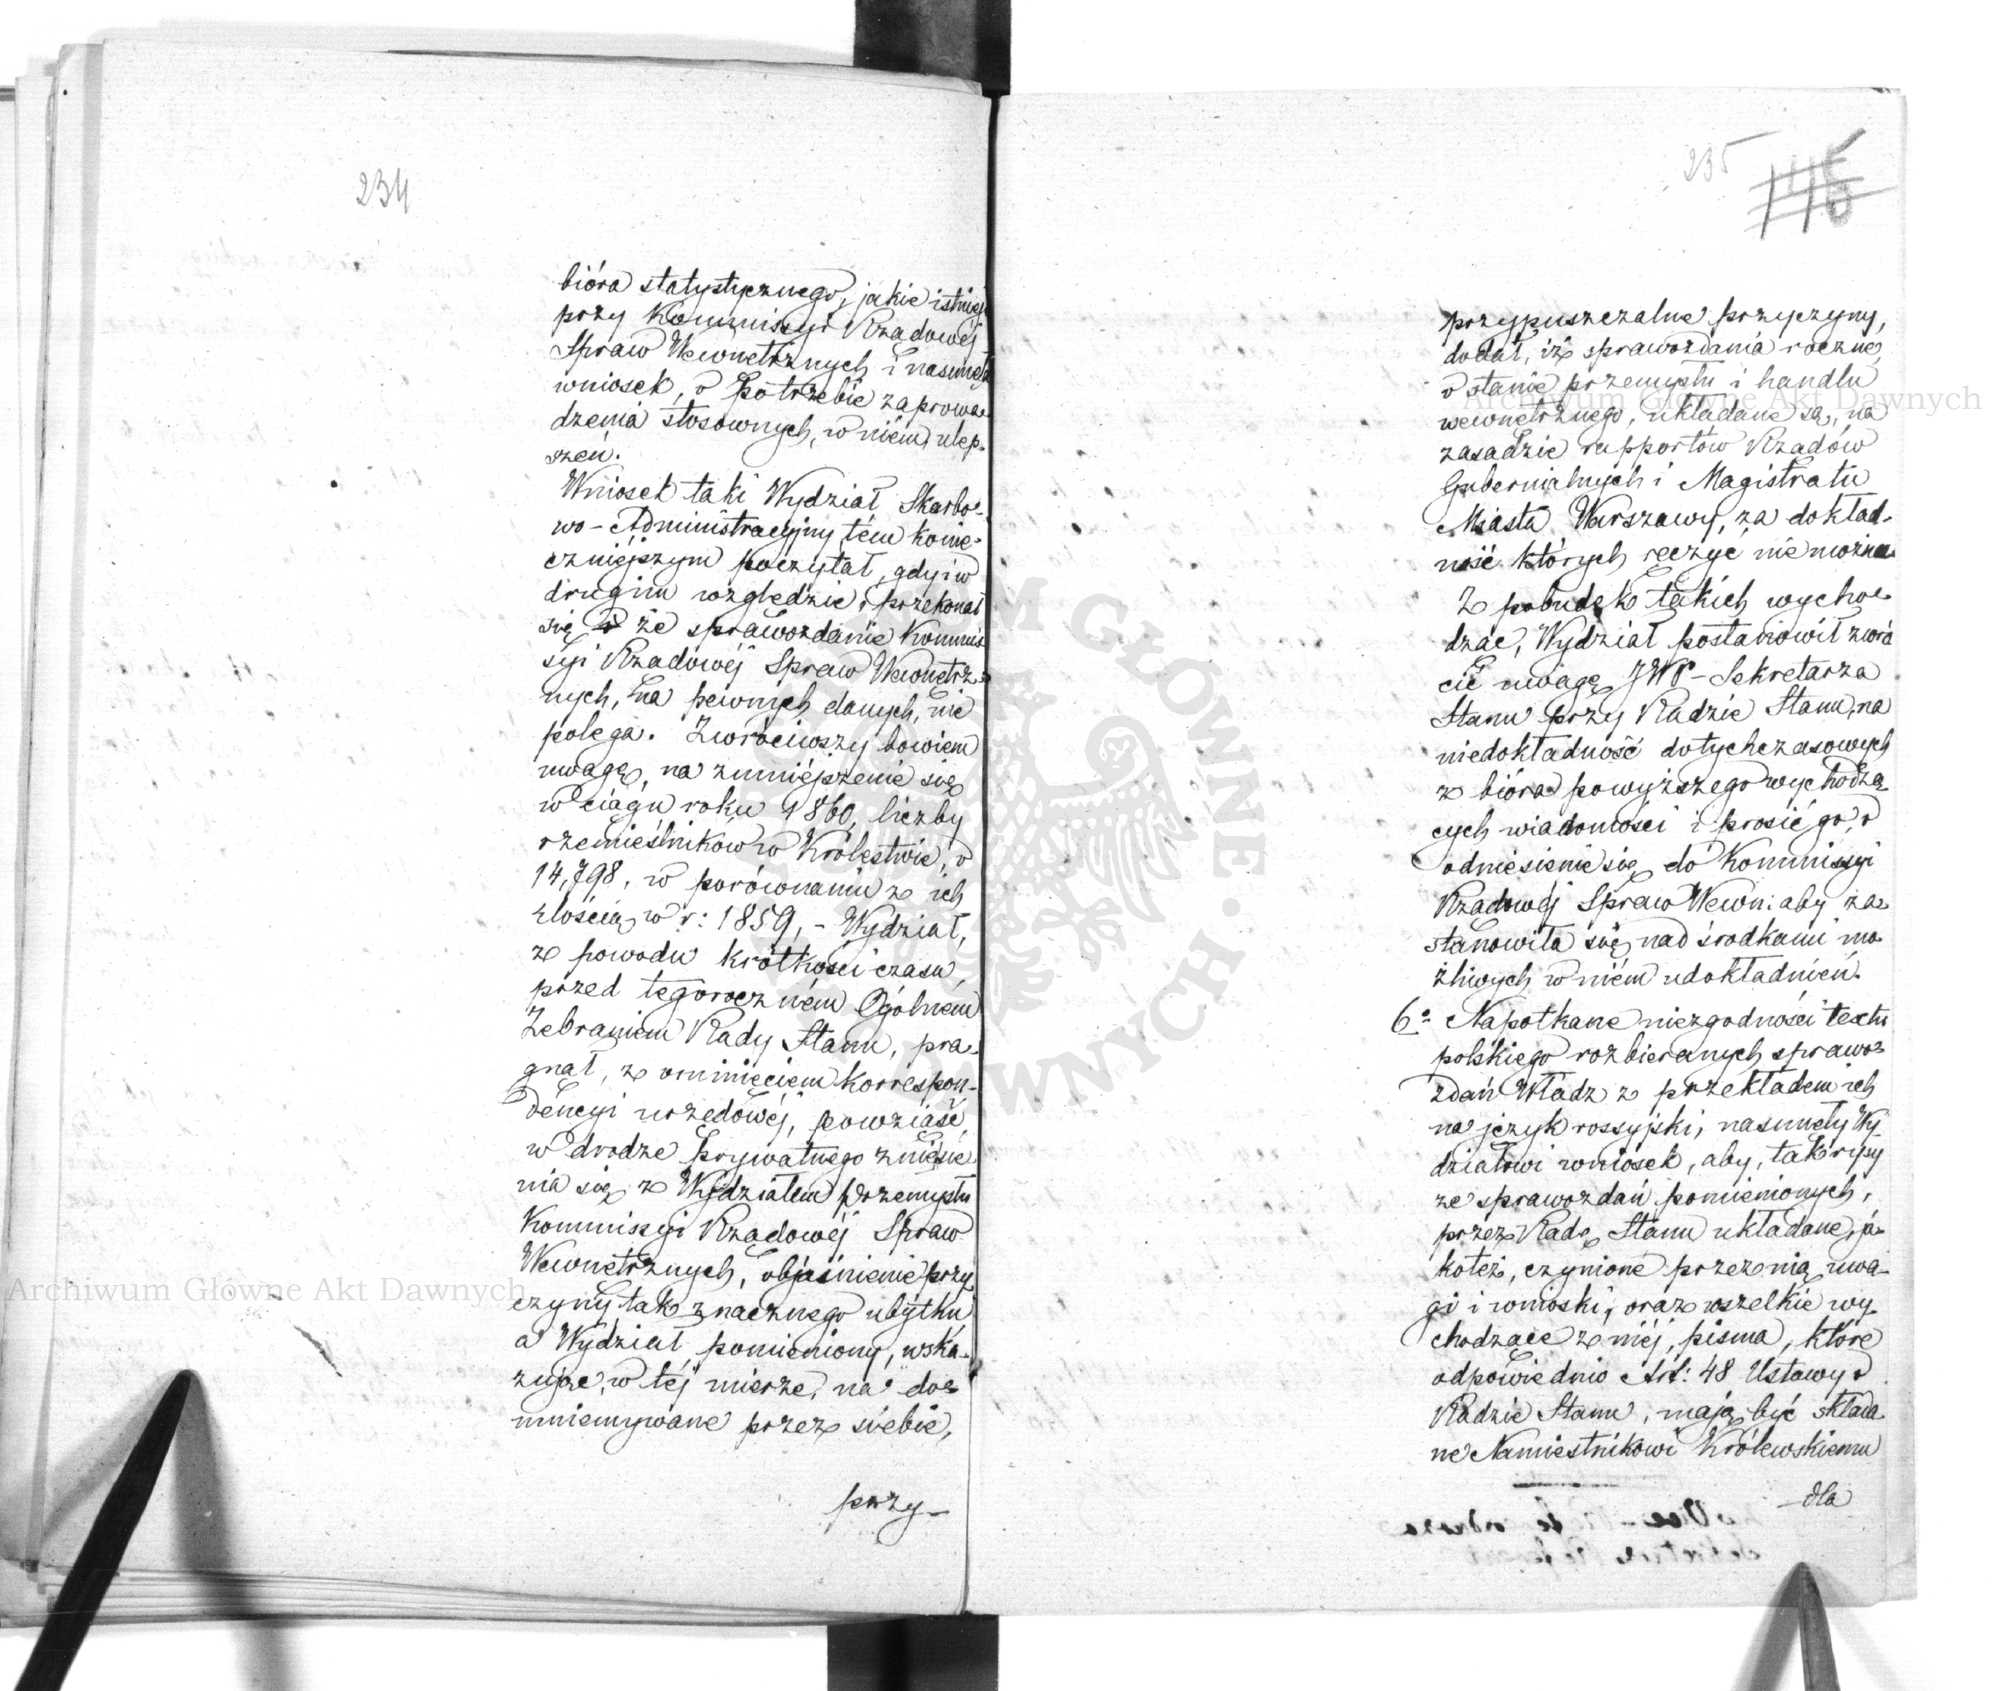 234
bióra statystycznego, jakie istnieje
przy Kommissyi Rządowéj
Spraw Wewnętrznych i nasunęła
wniosek, o potrzebie zaprowa-
dzenia stosownych, w niém, ulep-
szeń.
Wniosek taki Wydział Skarbo-
wo-Administracyjny tém konie-
czniejszym poczytał, gdy i w
drugim względzie, przekonał
się że sprawozdanie Kommis-
syi Rządowéj Spraw Wewnętrz-
nych, na pewnych danych, nie
polega. Zwróciwszy bowiem
uwagę, na zmniéjszenie się
w ciągu roku 1860, liczby
rzemieślników w Królestwie, o
14,798, w porównaniu z ich
ilością w r: 1859, - Wydział,
z powodu krótkości czasu
przed tegoroczném Ogólném
Zebraniem Rady Stanu, pra-
gnął, z ominięciem korrespon-
dencyi urzędowéj, powziąść,
w drodze prywatnego zniesie-
nia się z Wydziałem Przemysłu
Kommissyi Rządowéj Spraw
Wewnętrznych, objaśnienie przy-
czyny tak znacznego ubytku
a Wydział pomieniony, wska-
zując, w téj mierze, na do-
mniemywane przez siebie,
przy-
235
146
przypuszczalne przyczyny,
dodał, iż sprawozdania roczne,
o stanie przemysłu i handlu
wewnętrznego, układane są, na
zasadzie rapportów Rządów
Gubernialnych i Magistratu
Miasta Warszawy, za dokład-
ność których ręczyć nie można.
Z pobudek takich wycho-
dząc, Wydział postanowił zwró-
cić uwagę JWP-Sekretarza
Stanu przy Radzie Stanu, na
niedokładność dotychczasowych
z bióra powyższego wychodzą-
cych wiadomości i prosić go, o
odniesienie się do Kommissyi
Rządowéj Spraw Wewn: aby za-
stanowiła się nad środkami mo-
żliwych w niém udokładnień.
6° Napotkane niezgodności textu
polskiego rozbieranych sprawo-
zdań Władz z przekładem ich
na język rossyjski, nasunęły Wy-
działowi wniosek, aby, tak rysy
ze sprawozdań pomienionych,
przez Radę Stanu układane, ja-
koteż, czynione przez nią uwa-
gi i wnioski, oraz wszelkie wy-
chodzące z niéj, pisma, które
odpowiednio Art: 48 Ustawy o
Radzie Stanu, mają być składa-
ne Namiestnikowi Królewskiemu
-dla
Archiwum Główne Akt Dawnych
Archiwum Główne Akt Dawnych